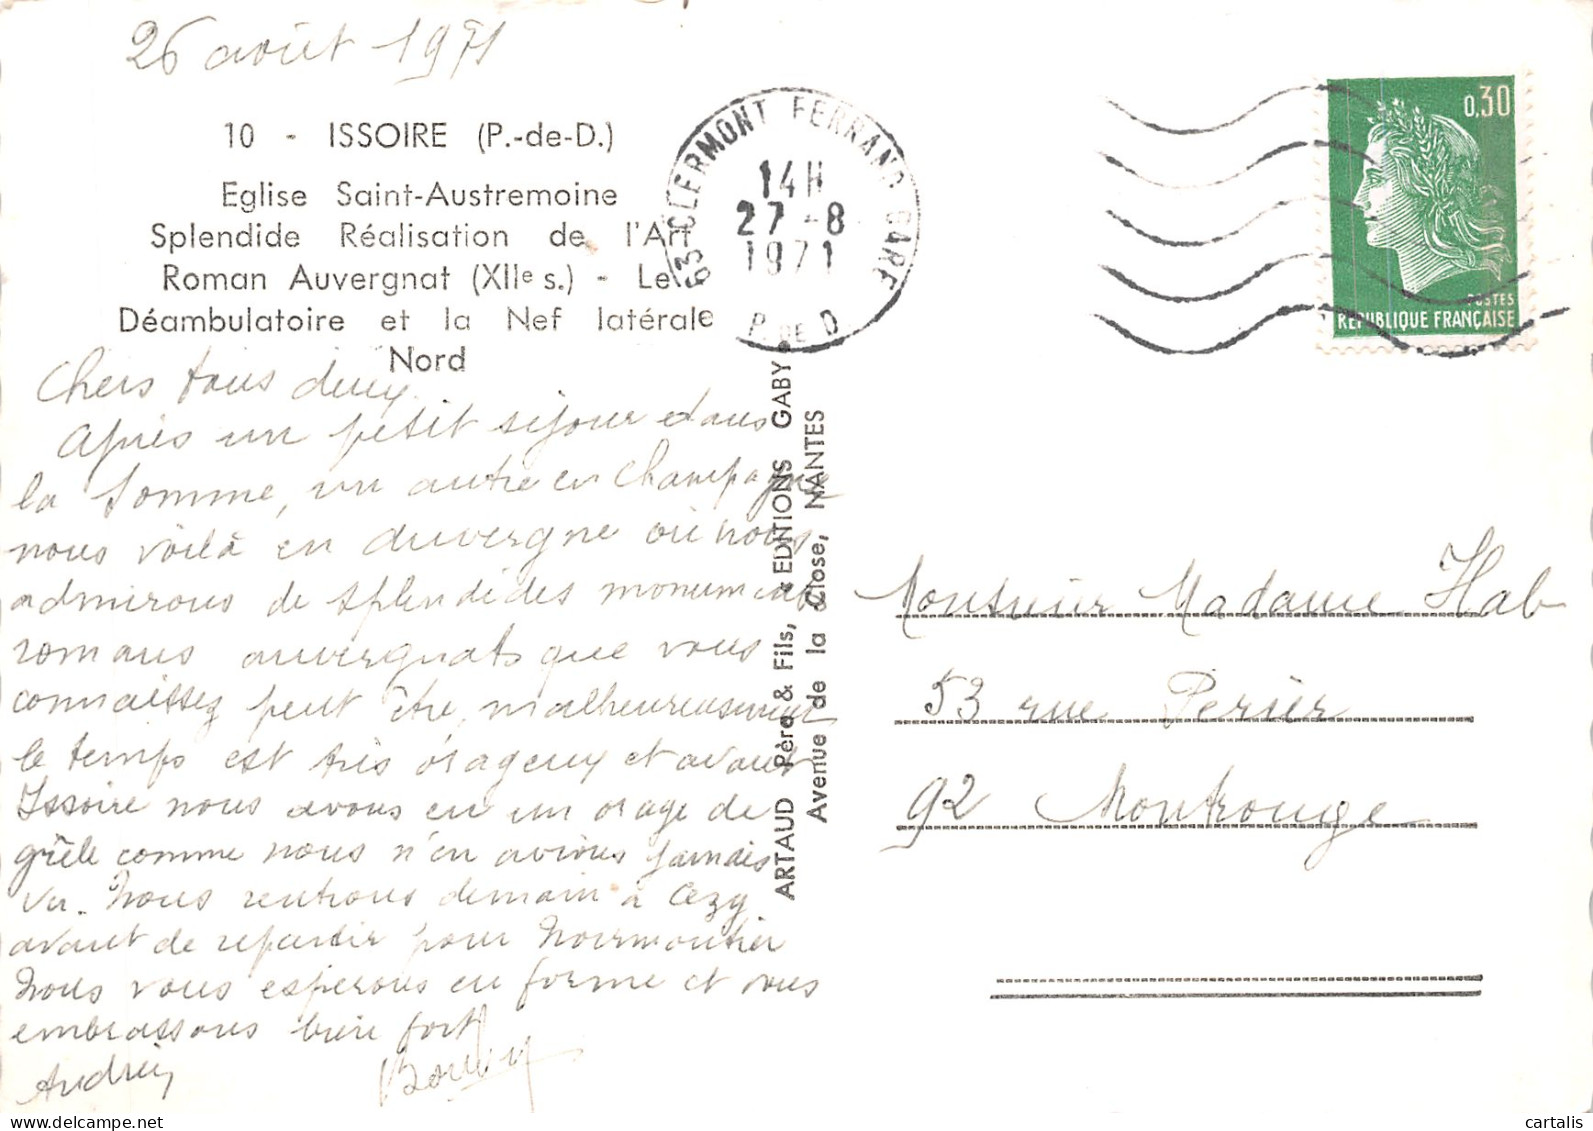 26 août 1971
10 - ISSOIRE (P.-de-D.)
Eglise Saint-Austremoine
Splendide Réalisation de l'Art
Roman Auvergnat (XIIe s.) - Le
Déambulatoire et la Nef latérale
Nord
63 CLERMONT FERRAND GARE
14H
27-8
1971
P. DE D
0,30
POSTES
REPUBLIQUE FRANÇAISE
Chers tous deux,
Après un petit séjour dans
la Somme, un autre en Champagne
nous voilà en Auvergne où nous
admirons de splendides monuments
romans auvergnats que vous
connaissez peut être, malheureusement
le temps est très orageux et avant
Issoire nous avons eu un orage de
grêle comme nous n'en avions jamais
vu. Nous rentrons demain à Cezy
avant de repartir pour Noirmoutier
Nous vous espérons en forme et vous
embrassons bien fort
ARTAUD Père & Fils, EDITIONS GABY
Avenue de la Close, NANTES
Monsieur Madame Hab
53 rue Perier
92 Montrouge
cartalis.com